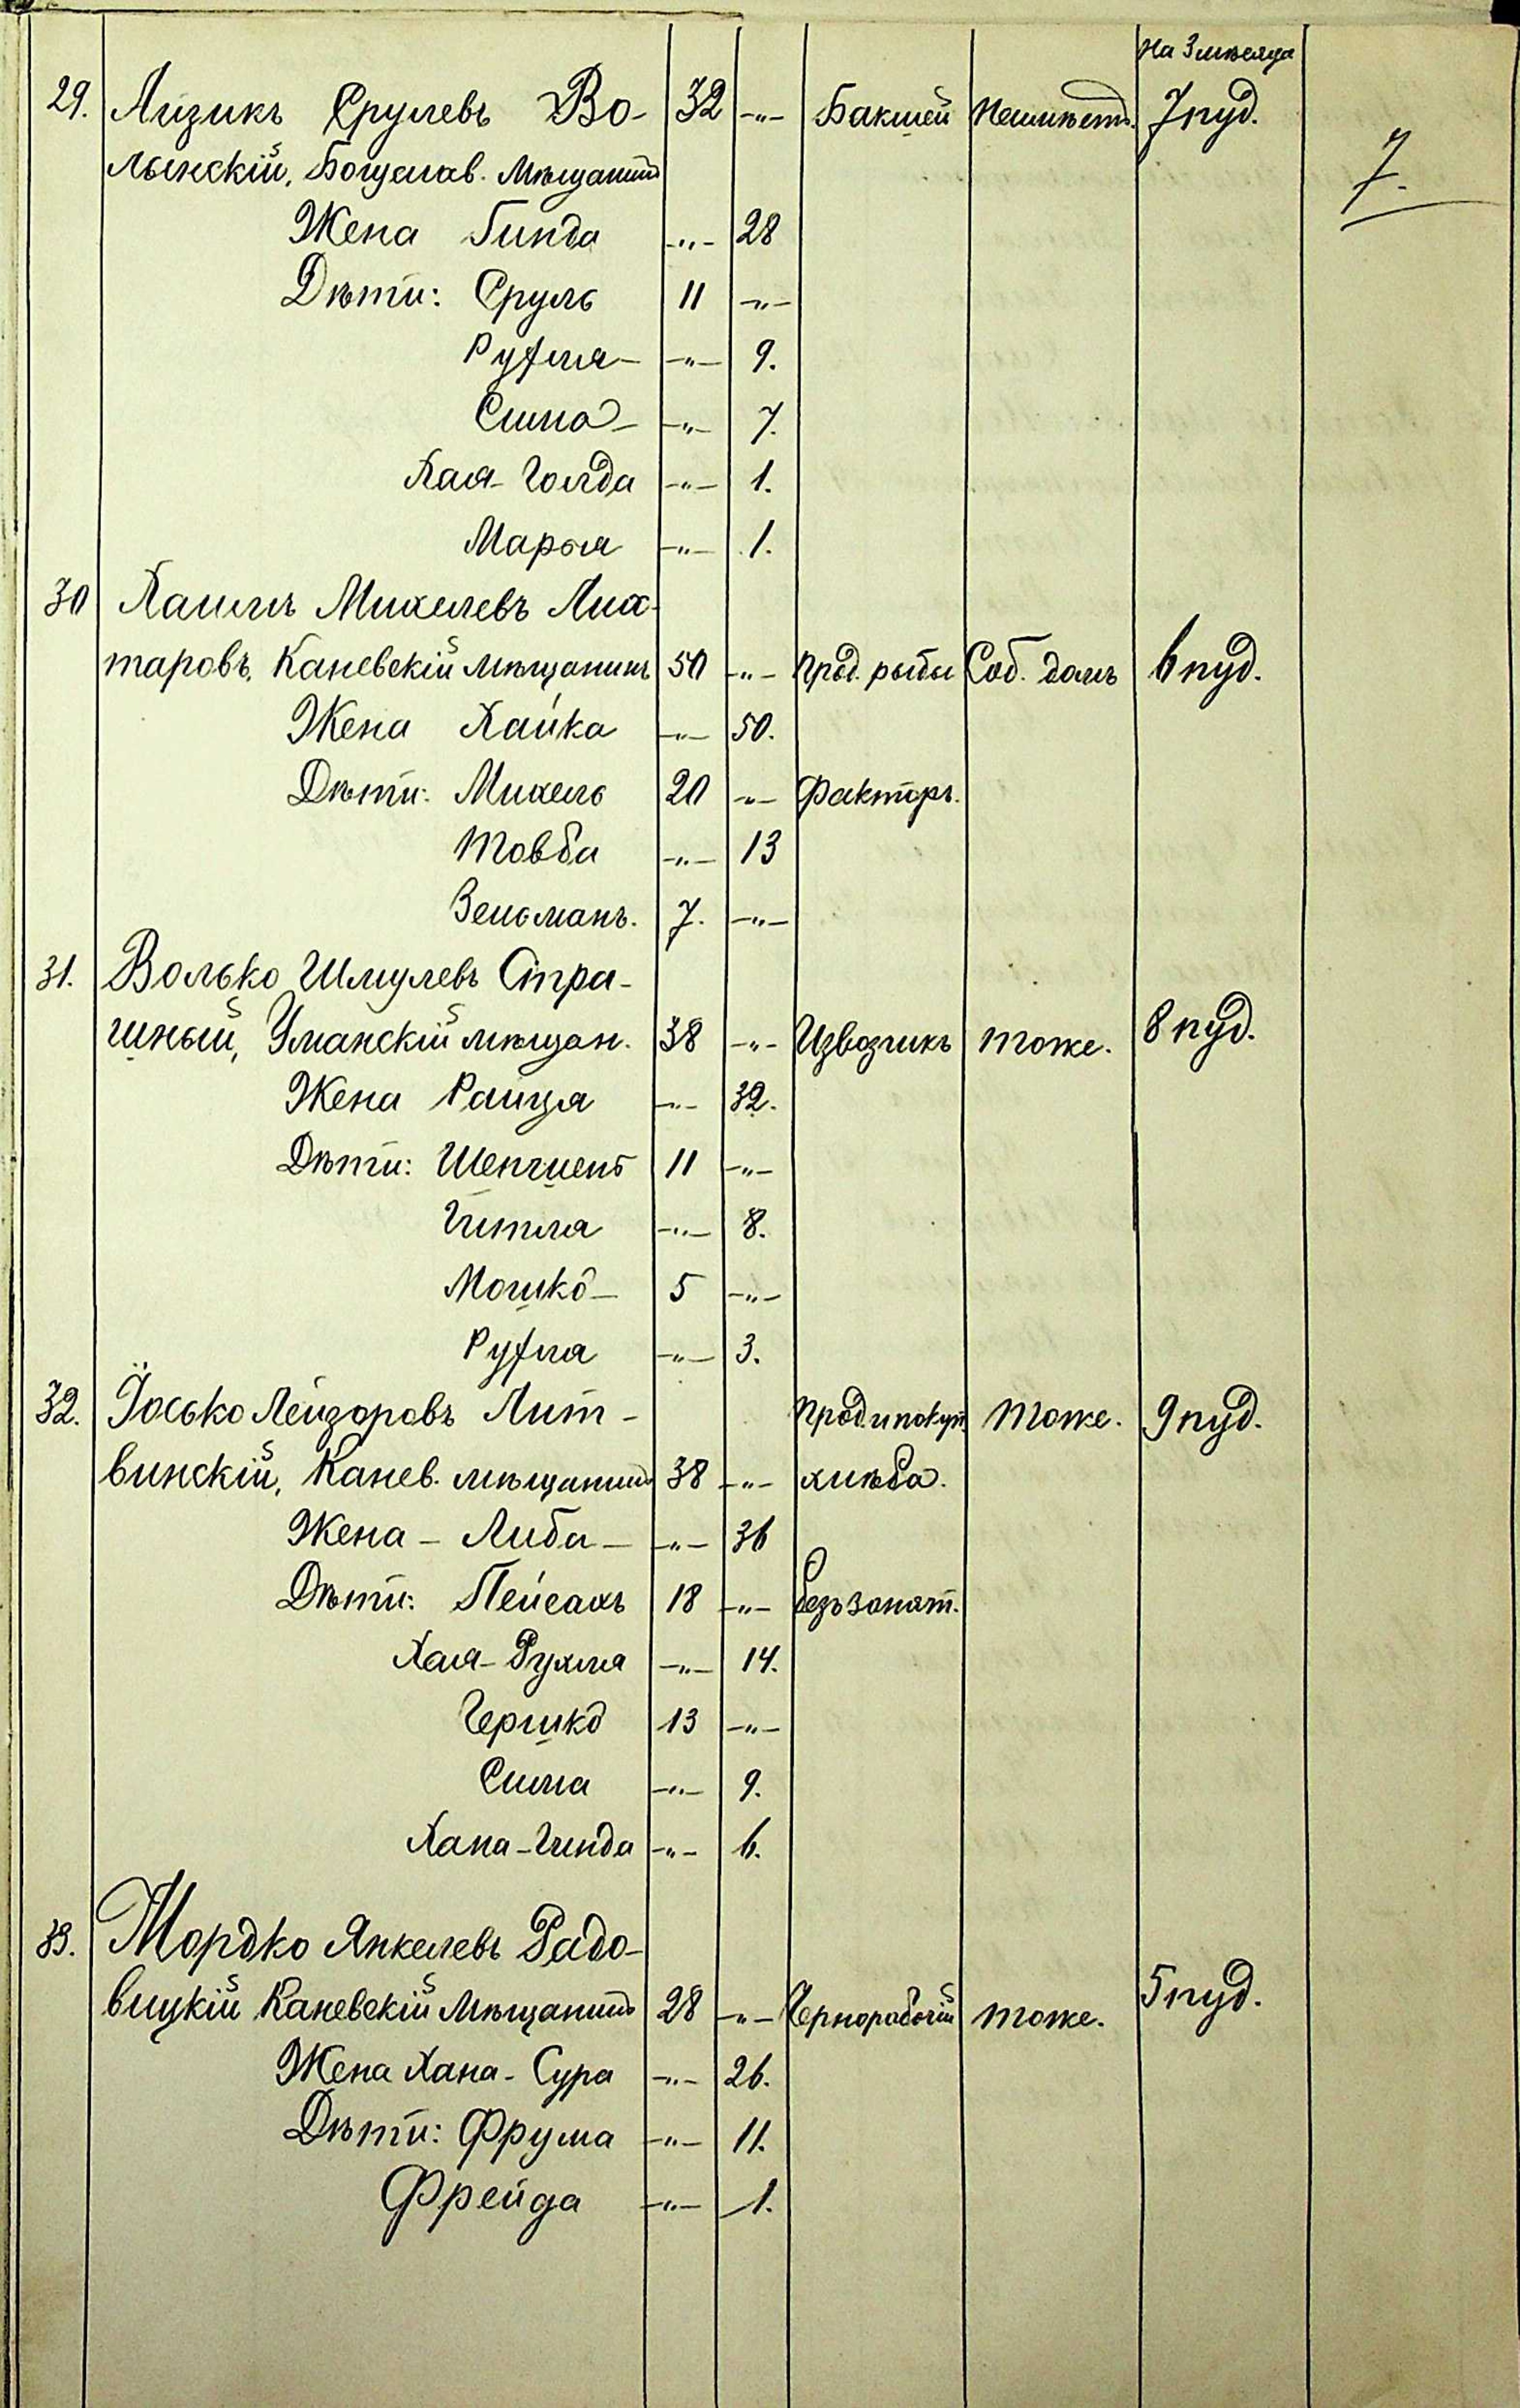 На 3 мѣсяца
29. Аизикъ Срулевъ Во- 32 -"- Бакалей Неимѣетъ. 7 пуд.
лынскій, Богуслав. Мѣщанинъ
7.
Жена Гинда -"- 28
Дѣти: Сруль 11 -"-
Рухля - -"- 9.
Сима - -"- 7.
Хая-Голда -"- 1.
Марья -"- 1.
30 Хаимъ Михелевъ Лих-
таровъ, Каневскій мѣщанинъ 50 -"- прод. рыбы Соб. домъ 6 пуд.
Жена Хайка -"- 50.
Дѣти: Михель 20 -"- Факторъ.
Товба -"- 13
Зельманъ. 7. -"-
31. Волько Шмулевъ Стра-
шный, Уманскій мѣщан. 38 -"- Извозчикъ тоже. 8 пуд.
Жена Раиця -"- 32.
Дѣти: 11 -"-
Гитля -"- 8.
Мошко - 5 -"-
Рухля -"- 3.
32. Іосько Лейзоровъ Лит- Прод. и покуп. тоже. 9 пуд.
винскій, Канев. мѣщанинъ 38 -"- хлѣба.
Жена - Либа - -"- 36
Дѣти: Пейсахъ 18 -"- безъ занят.
Хая-Рухля -"- 14.
Гершко 13 -"-
Сима -"- 9.
Хана-Гинда -"- 6.
33. Мордко Янкелевъ Радо-
вицкій Каневскій Мѣщанинъ 28 -"- Чернорабочій тоже. 5 пуд.
Жена Хана-Сура -"- 26.
Дѣти: Фрума -"- 11.
Фрейда -"- 1.